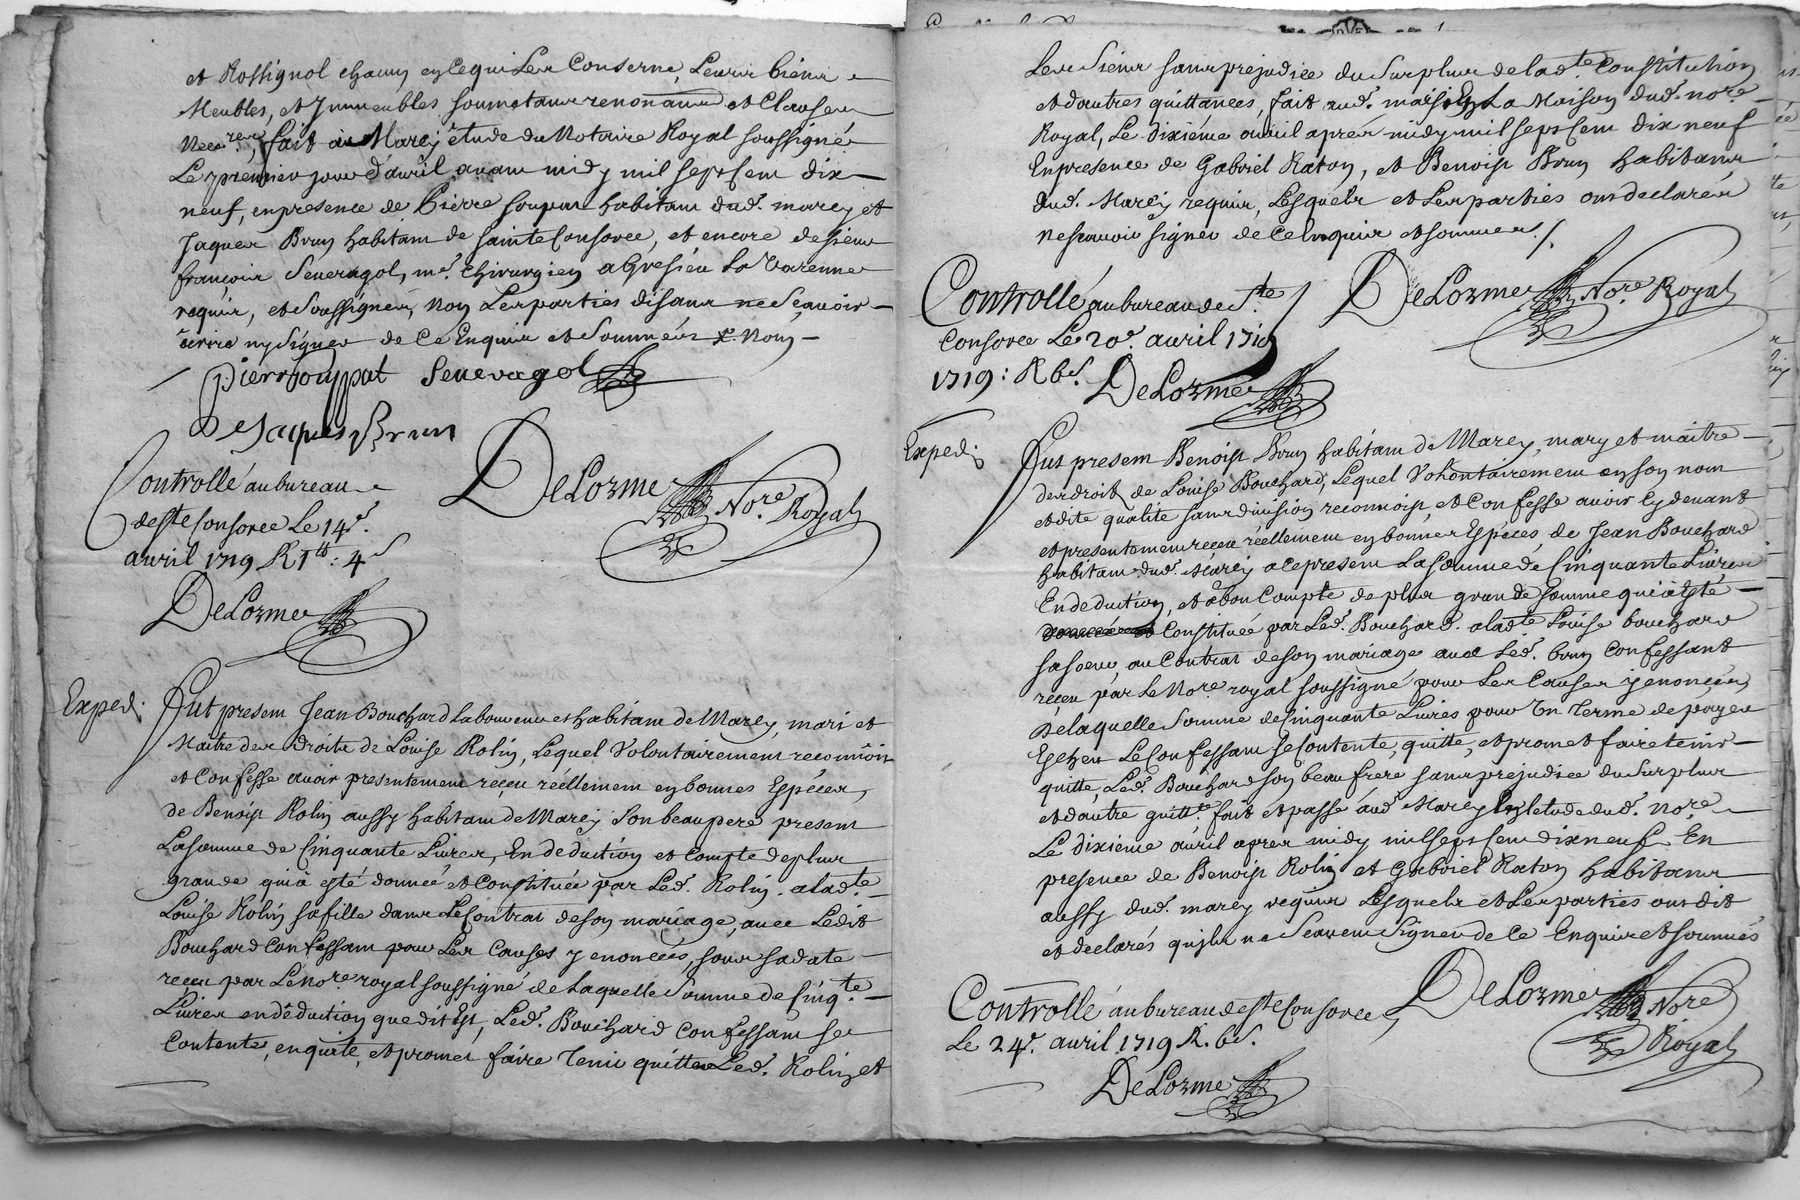 et Rossignol chacun en ce qui Les Conserne, Leurs biens
Meubles, et Immeubles soumetans renonçans et Clauses
Necres, fait au Marcy étude du Notaire Royal soussigné
Le premier jour d'avril avant midy mil sept cent dix
neuf, en presence de Pierre soupat habitant dud. marcy et
Jaques Brun habitant de sainte Consorce, et encore de sieur
françois Seneragol, me. Chirurgien a Gresieu La Varenne
requis, et soussignés, Non Les parties disant ne sçavoir
écrire ny signer de Ce Enquis et sommés
Pierre souppat Seneragol
De Jacques Brun
DeLorme Nore. Royal
Controllé au bureau
de ste Consorce Le 14e.
avril 1719 R 1tt: 4s
DeLorme
Exped.
Fut present Jean Bouchard Laboureur et habitant de Marcy, mari et
Maitre des droits de Louise Rolin, Lequel Volontairement reconnoit
et Confesse avoir presentement reçeu réellement en bonnes Espéces,
de Benoist Rolin aussy habitant de Marcy son beau pere present
La somme de Cinquante Livres, En deduction et Compte de plus
grande qui a esté donnée et Constituée par Led. Rolin a ladte
Louise Rolin sa fille dans Le Contrat de son mariage, avec Ledit
Bouchard Confessant pour Les Causes y enoncées, sous sa date
reçeu par Le Nore. royal soussigné de Laquelle Somme de Cinqte.
Livres en déduction que dit Est, Led. Bouchard Confessant se
Contente, en quitte, et promet faire tenir quitte Led. Rolin et
Les Siens sans prejudice du Surplus de ladte. Constitution
et d'autres quittances, fait aud. maison La Maison dud. nore.
Royal, Le dixiéme avril aprés midy mil sept cent dix neuf
En presence de Gabriel Raton, et Benoist Brun habitans
dud. Marcy requis, Lesquels et Les parties ont declarés
ne scavoir signer de Ce Enquis et sommés./.
DeLorme Nore. Royal
Controllé au bureau de Ste
Consorce Le 20e. avril
1719: R 6s.
DeLorme
Exped.
Fut present Benoist Brun habitant de Marcy, mary et maitre
des droits de Louise Bouchard, Lequel Volontairement en son nom
et dite qualité sans division reconnoist, et Confesse avoir Cy devant
et presentement reçeu réellement en bonnes Espéces, de Jean Bouchard
habitant dud. Marcy a ce present La somme de Cinquante Livres
En deduction, et a bon Compte de plus grande somme qui a esté
Constituée par Led. Bouchard a ladte Louise bouchard
sa soeur au Contrat de son mariage avec Led. brun Confessant
reçeu par Le Nore. royal soussigné pour Les Causes y enoncées
De laquelle Somme de Cinquante Livres pour Un Terme de payer
Escheu Le Confessant se Contente, quitte, et promet faire tenir
quitte, Led. Bouchard son beau frere sans prejudice du Surplus
et d'autre quitte. fait et passé aud. Marcy Letude dud. Nore.
Le dixiéme avril aprés midy mil sept cent dix neuf. En
presence de Benoist Rolin et Gabriel Raton habitans
aussy dud. marcy requis Lesquels et Les parties ont dit
et declarés qu'ils ne Scavent Signer de Ce Enquis et sommés
DeLorme Nore
Royal
Controllé au bureau de ste Consorce
Le 24e. avril 1719 R. 6s.
DeLorme